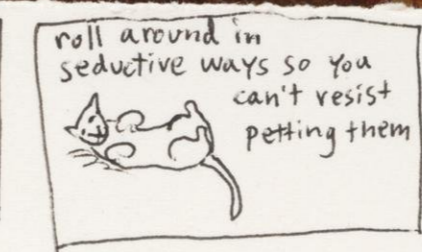 roll around in
seductive ways so you
can't resist
petting them